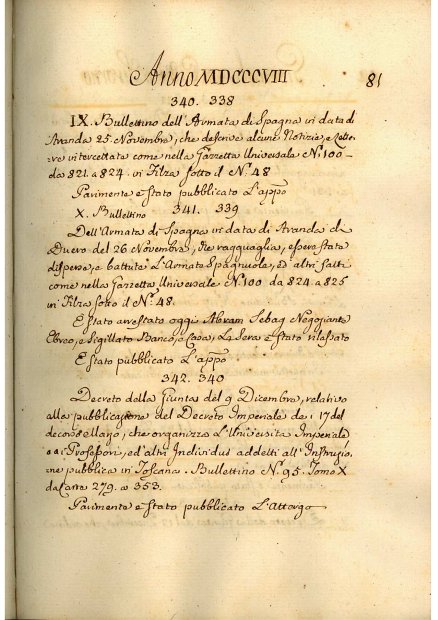 Anno MDCCCVIII
81
340. 338
IX. Bullettino dell'Armata di Spagna in data di
Aranda 25. Novembre, che descrive alcune Notizie, e Lette-
re intercettate come nella Gazzetta Universale N.º 100-
da 821. a 824. in Filza sotto il N.º 48
Parimente è stato pubblicato L'appo
341. 339
X. Bullettino
Dell'Armata di Spagna in data di Aranda de
Duero del 26 Novembre, che ragguaglia, essere stata
dispersa, e battuta L'Armata Spagnuola, ed altri fatti
come nella Gazzetta Universale N.º 100 da 824. a 825
in Filza sotto il N.º 48.
E stato arrestato oggi Abram Sebag Negoziante
Ebreo, e Sigillato Banco, e Casa, La Sera è stato rilassato
E stato pubblicato L'appo
342. 340
Decreto della Giunta del 9 Dicembre, relativo
alla pubblicazione del Decreto Imperiale de' 17 del
decorso, che organizza L'Università Imperiale
Professori, ed altri Individui addetti all'Instruzio-
ne pubblica in Toscana. Bullettino N.º 95. Tomo X
da Carte 279. a 353.
Parimente è stato pubblicato L'